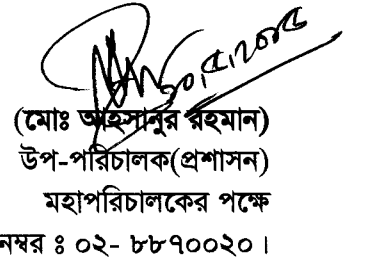 (মোঃ আহসানুর রহমান)
উপ-পরিচালক(প্রশাসন)
মহাপরিচালকের পক্ষে
নম্বর ঃ ০২- ৮৮৭০০২০।